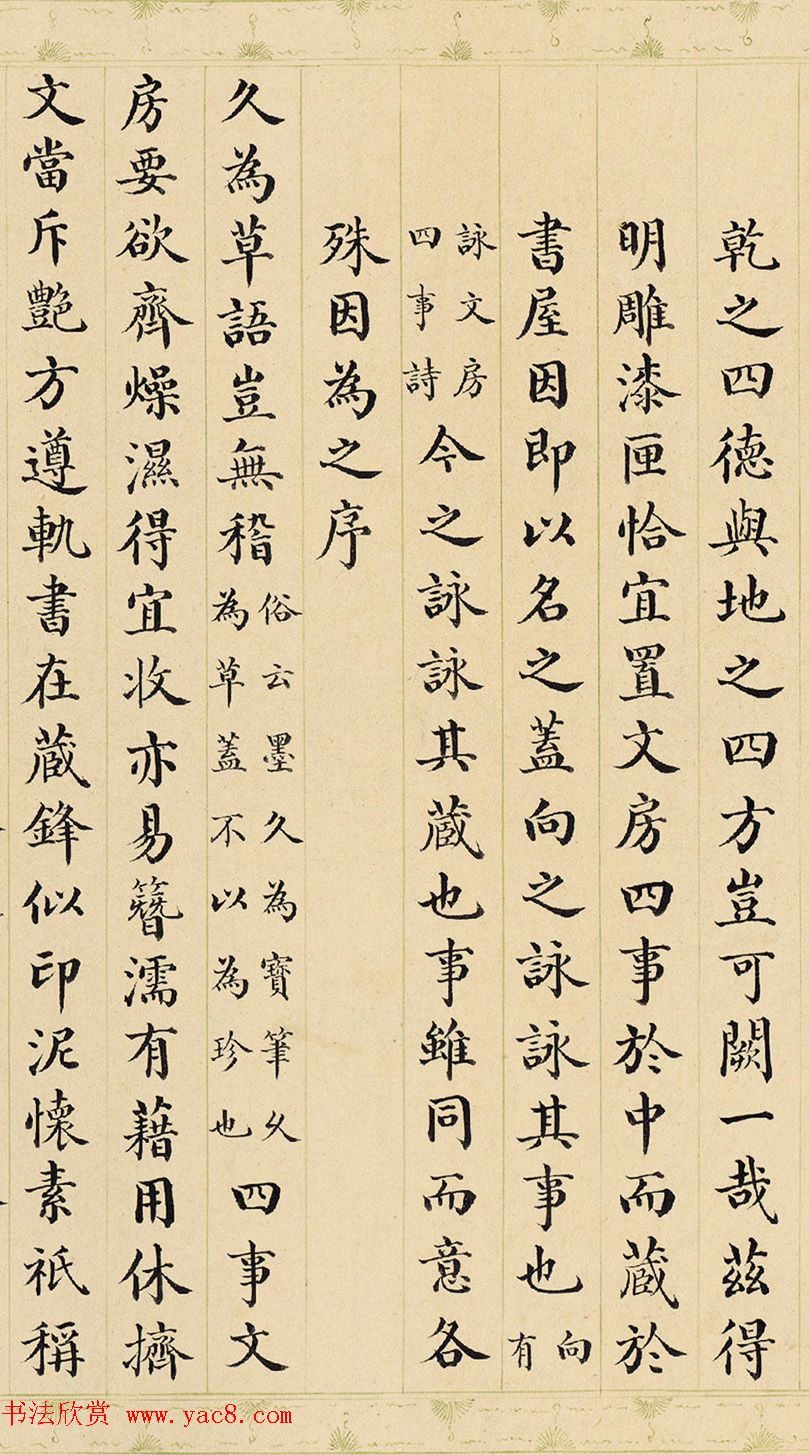 乾之四徳與地之四方豈可闕一哉茲得
明雕漆匣恰宜置文房四事於中而蔵於
書屋因即以名之蓋向之詠詠其事也向有
詠文房四事詩今之詠詠其蔵也事雖同而意各
殊因為之序
久為草語豈無稽俗云墨久為寶筆久為草蓋不以為珍也四事文
房要欲齊燥濕得宜收亦易簪濡有藉用休擠
文當斥艶方遵軌書在蔵鋒似印泥懷素祇稱
书法欣赏 www.yac8.com